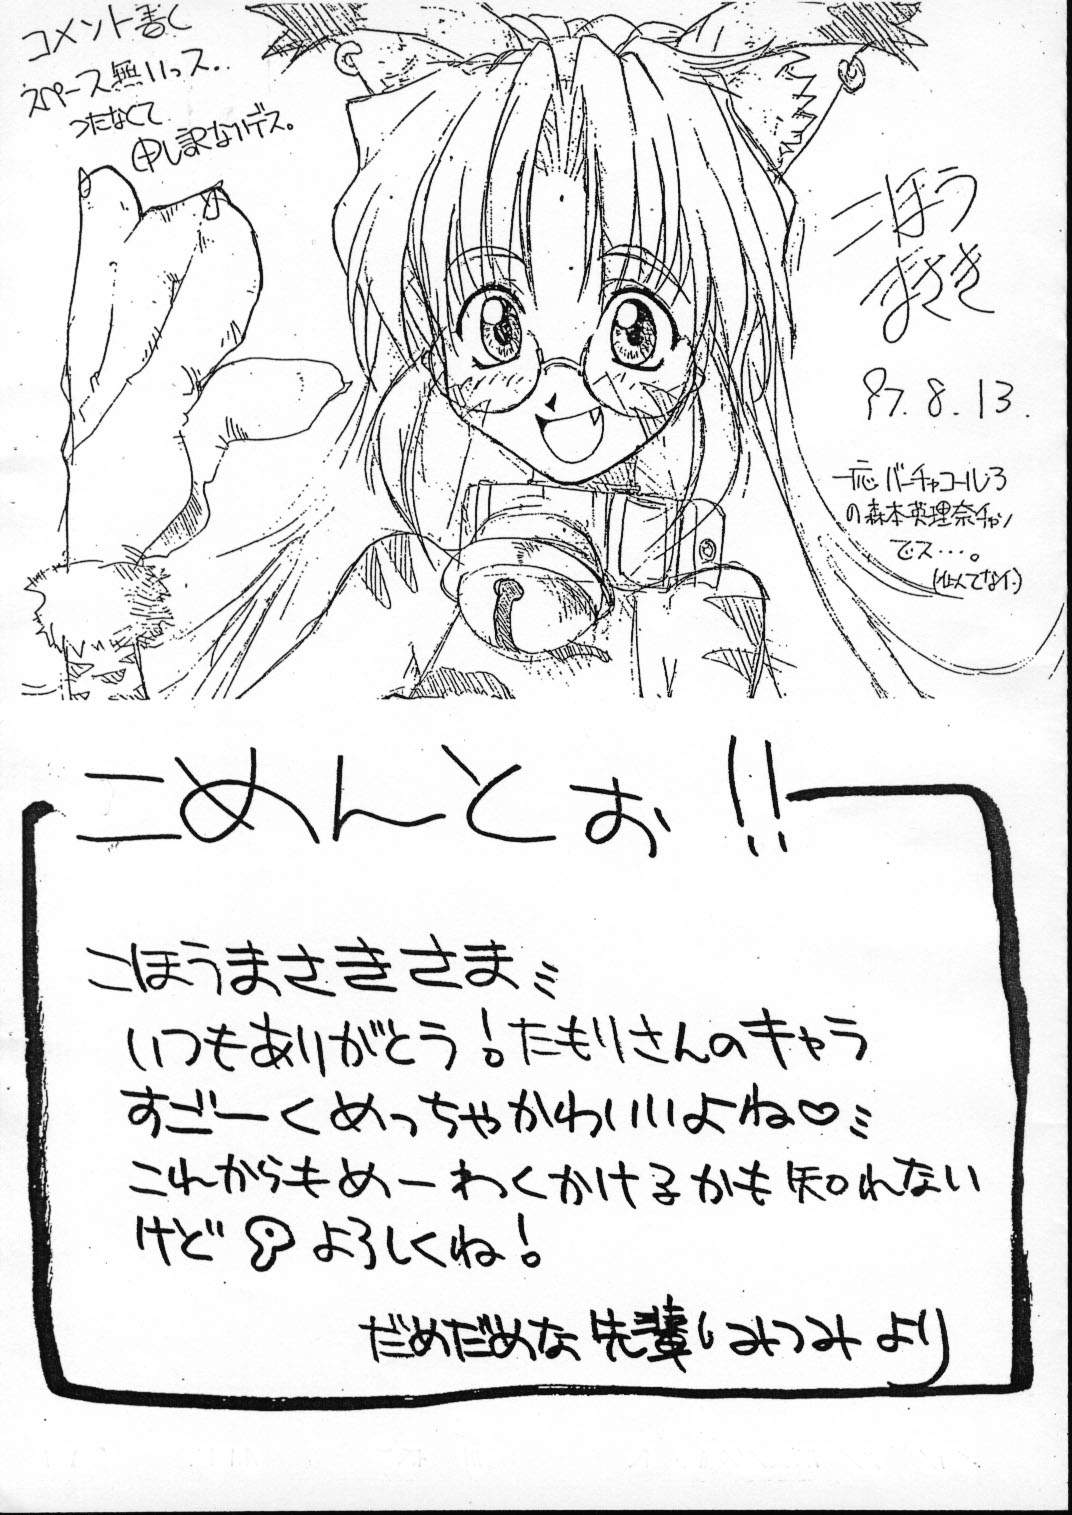 コメント書く
スペース無いっス..
つたなくて
申し訳ないデス。
こほう
まさき
97.8.13.
一応バーチャコール3
の森本英理奈チャン
でス…。
(似てなイ)
こめんとぉ!!
こほうまさきさま
いつもありがとう!たもりさんのキャラ
すごーくめっちゃかわいいよね♡
これからもめーわくかける かも知れない
けど よろしくね!
だめだめな先輩しみつみより